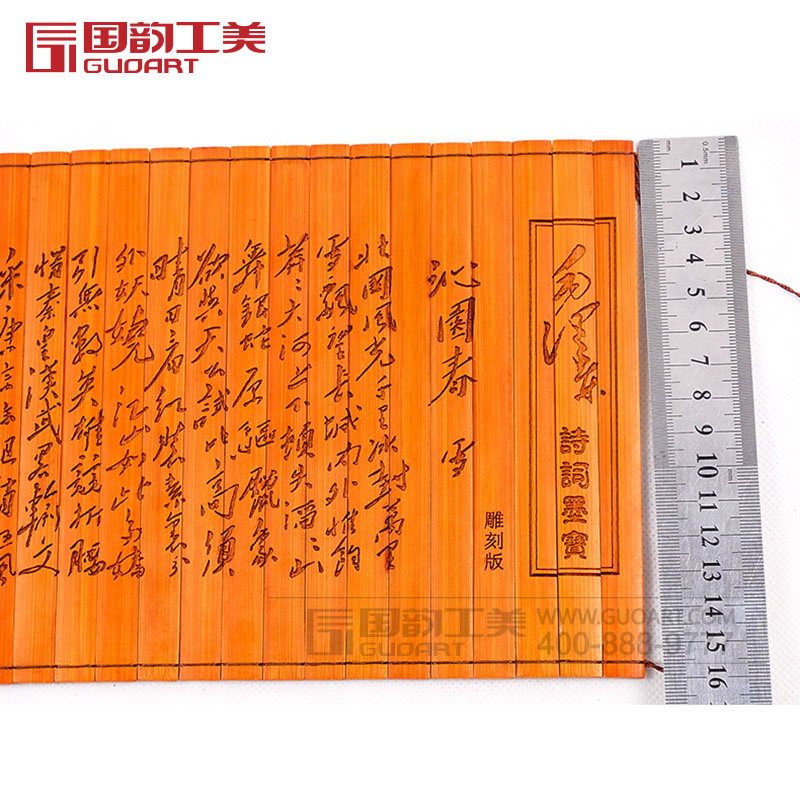 国韵工美
GUOART
毛澤東
詩詞墨寶
雕刻版
沁園春 雪
北國風光千里冰封萬里
雪飄望長城内外惟餘
莽〻大河上下頓失滔〻山
舞銀蛇原驅臘象
欲與天公試比高須
晴日看紅裝素裹分
外妖嬈江山如此多嬌
引無數英雄競折腰
惜秦皇漢武略輸文
采唐宗宋祖稍遜風
mm 0.5mm
1
2
3
4
5
6
7
8
9
10
11
12
13
14
15
16
国韵工美
GUOART
WWW.GUOART.COM